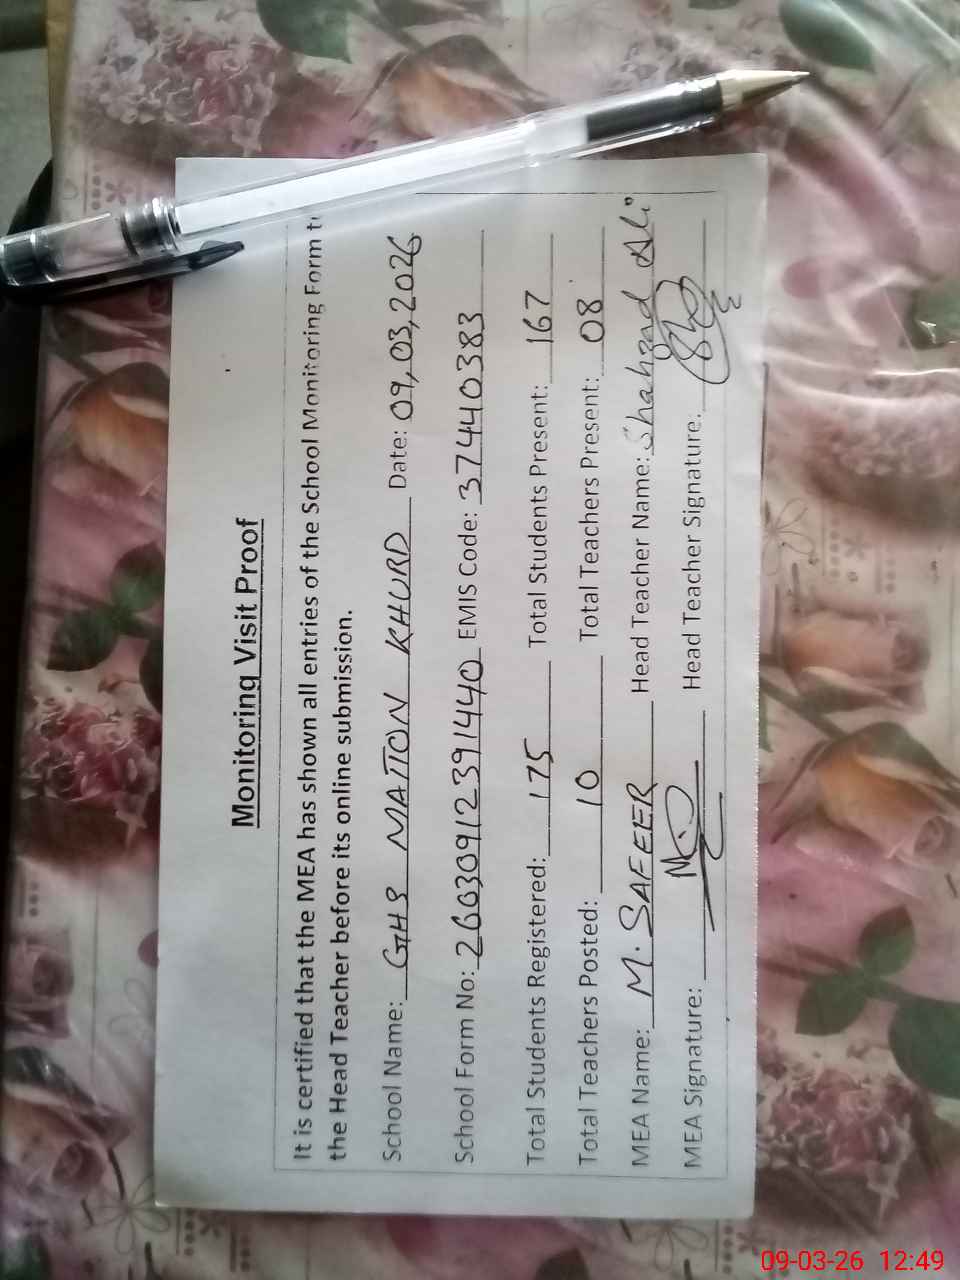 Monitoring Visit Proof
It is certified that the MEA has shown all entries of the School Monitoring Form to
the Head Teacher before its online submission.
School Name: GHS MATTON KHURD Date: 09,03,2026
School Form No: 26030912391440 EMIS Code: 37440383
Total Students Registered: 175 Total Students Present: 167
Total Teachers Posted: 10 Total Teachers Present: 08
MEA Name: M. SAFEER Head Teacher Name: Shahzad Ali
MEA Signature: Head Teacher Signature:
09-03-26 12:49